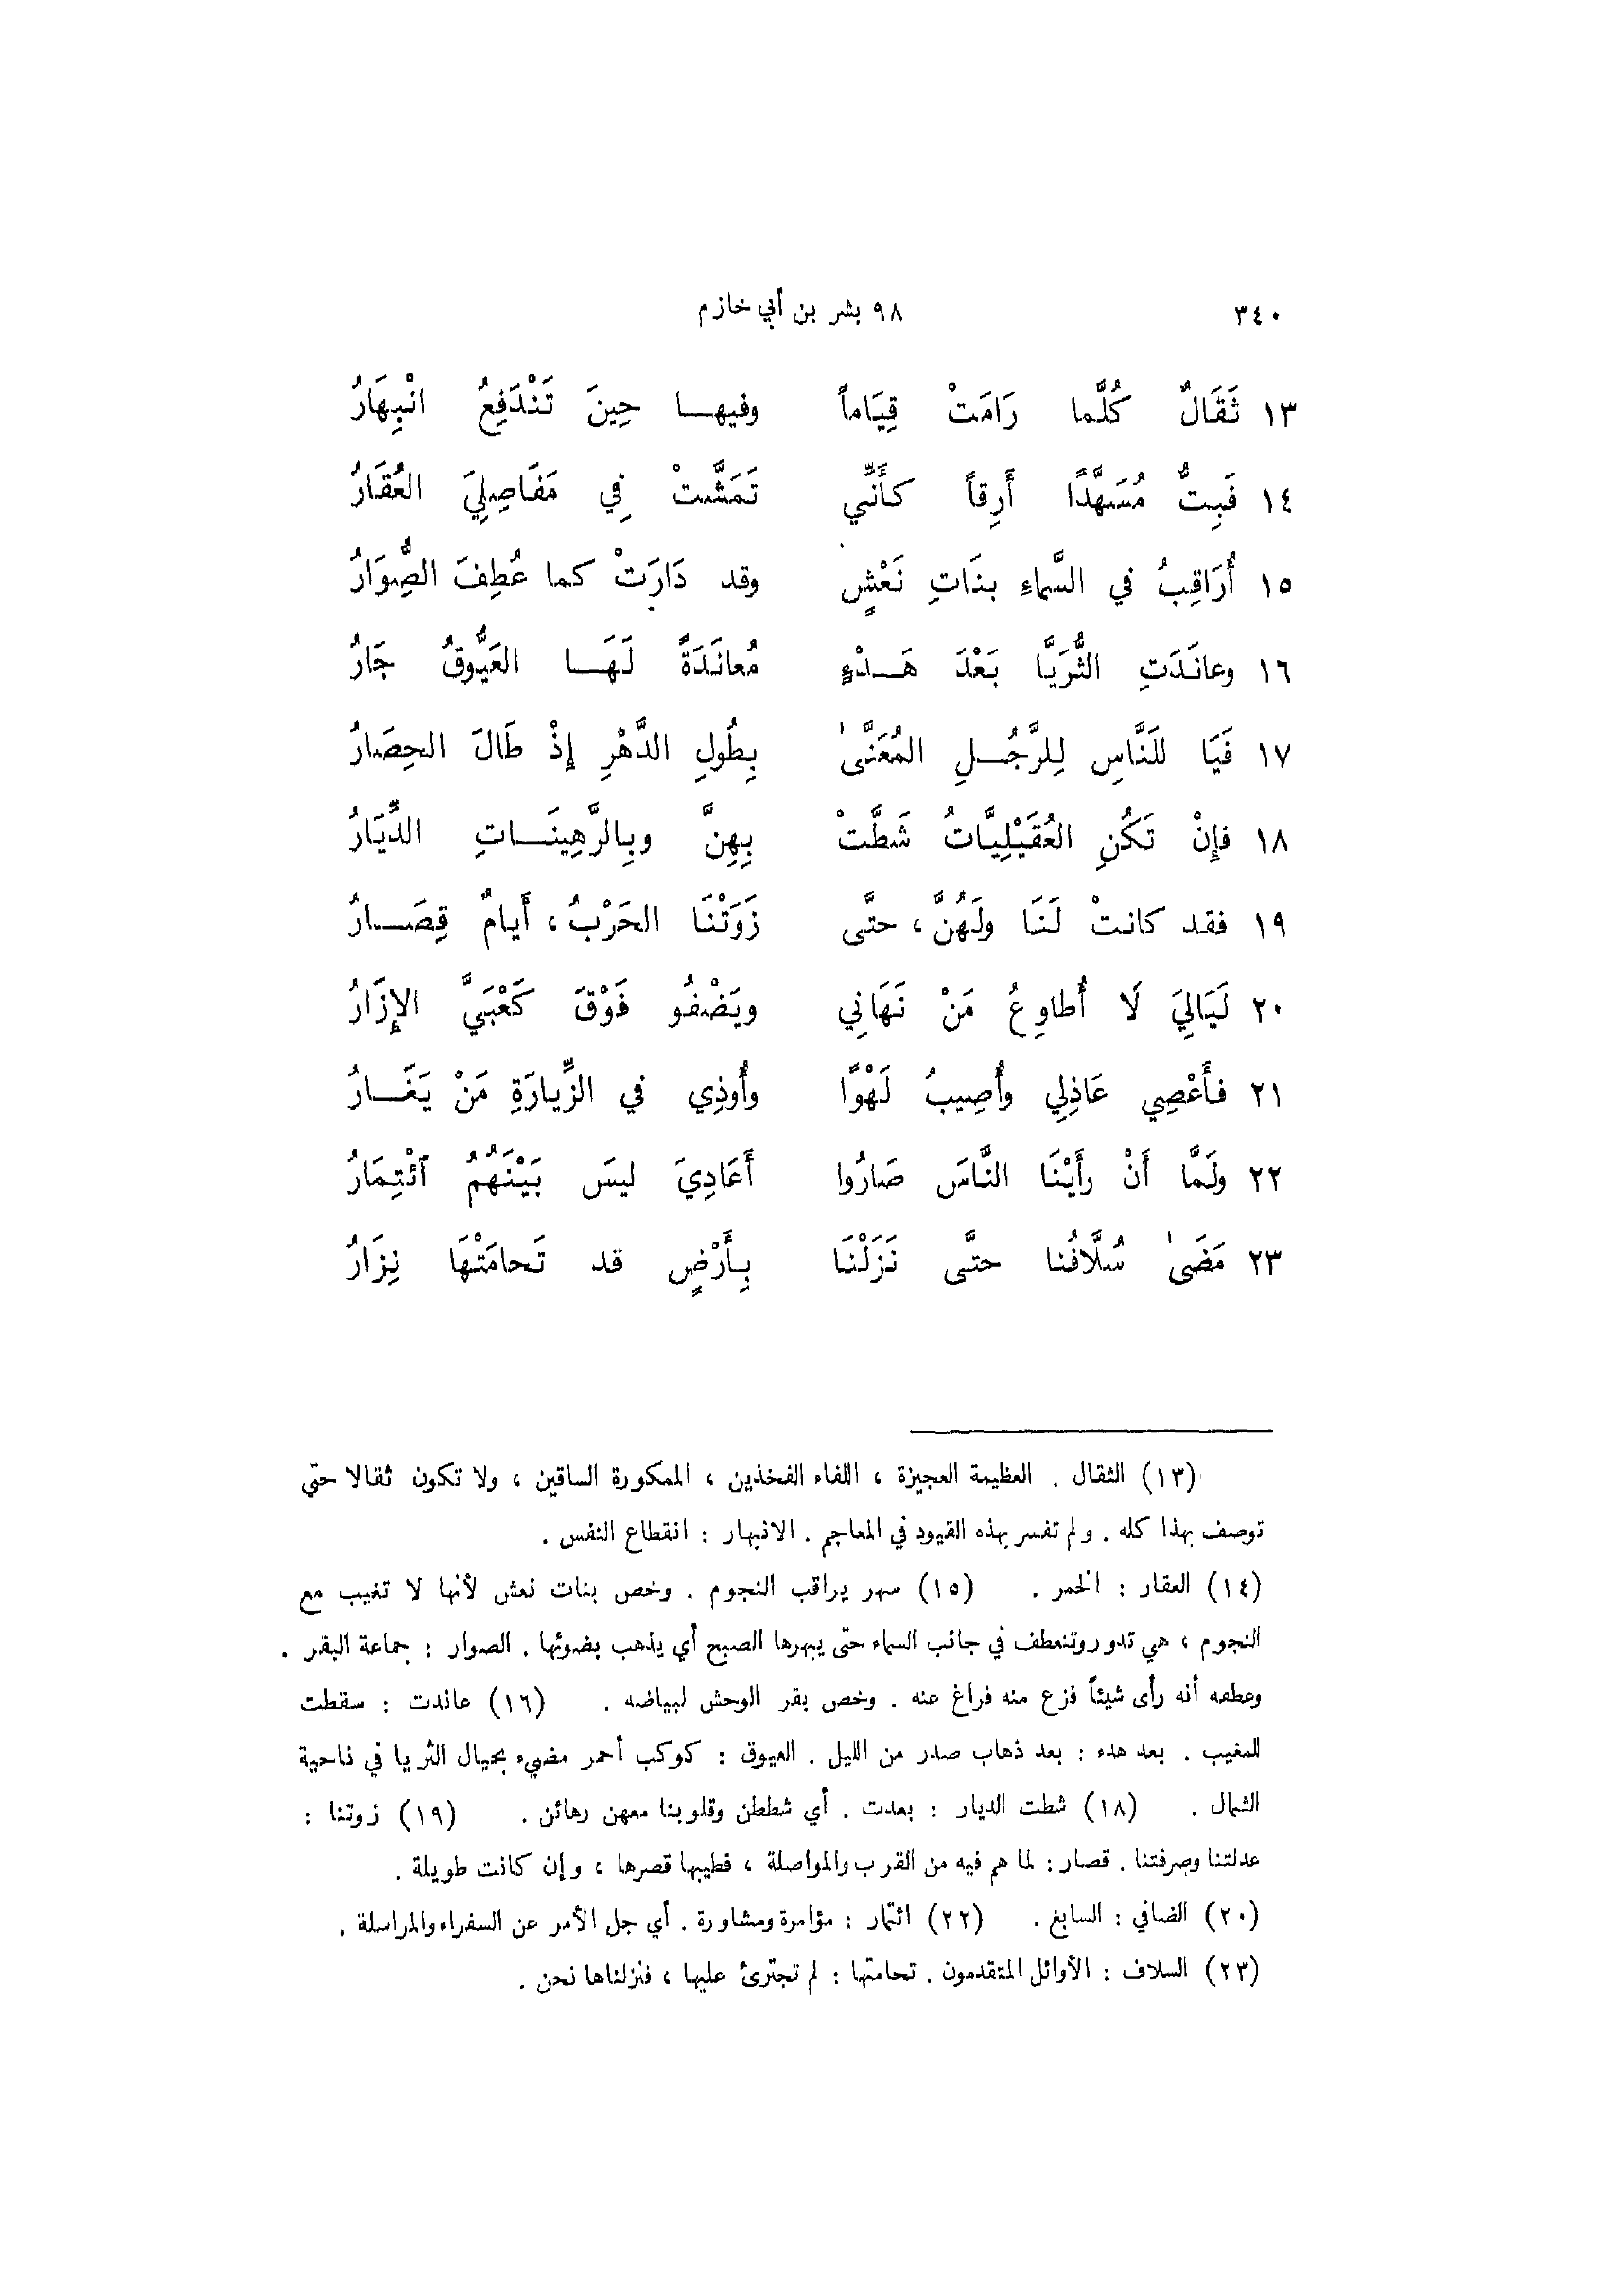 ٣٤٠ ٩٨ بشر بن أبي خازم
١٣ ثَقَالٌ كُلَّما رَامَتْ قِيَاماً وفيهـا حِينَ تَنْدَفِعُ انْبِهَارُ
١٤ فَبِتُّ مُسَهَّدًا أَرِقاً كأَنِّي تَمَشَّتْ فِي مَفَاصِلِيَ العُقَارُ
١٥ أُرَاقِبُ في السَّماءِ بنَاتِ نَعْشٍ وقد دَارَتْ كما عُطِفَ الصُِّوَارُ
١٦ وعانَدَتِ الثُّرَيَّا بَعْدَ هَـدْءٍ مُعانَدَةً لَهَـا العَيُّوقُ جَارُ
١٧ فَيَا للَنَّاسِ لِلرَّجُـلِ المُعَنَّىٰ بِطُولِ الدَّهْرِ إِذْ طَالَ الحِصَارُ
١٨ فإِنْ تَكُنِ العُقَيْلِيَّاتُ شَطَّتْ بِهِنَّ وبِالرَّهِينَـاتِ الدِّيَارُ
١٩ فقد كانتْ لَنَا ولَهُنَّ ، حتَّى زَوَتْنَا الحَرْبُ ، أَيامٌ قِصَـارُ
٢٠ لَيَالِيَ لَا أُطاوِعُ مَنْ نَهَانِي ويَضْفُو فَوْقَ كَعْبَيَّ الإِزَارُ
٢١ فأَعْصِي عَاذِلِي وأُصِيبُ لَهْوًا وأُوذِي في الزِّيارَةِ مَنْ يَغَـارُ
٢٢ ولَمَّا أَنْ رأَيْنَا النَّاسَ صَارُوا أَعَادِيَ ليسَ بَيْنَهُمُ ٱئْتِمَارُ
٢٣ مَضَىٰ سُلَّافُنا حتَّى نَزَلْنَا بِأَرْضٍ قد تَحامَتْهَا نِزَارُ
(١٣) الثقال . العظيمة العجيزة ، اللفاء الفخذين ، الممكورة الساقين ، ولا تكون ثقالا حتى
توصف بهذا كله . ولم تفسر بهذه القيود في المعاجم . الانبهار : انقطاع النفس .
(١٤) العقار : الخمر . (١٥) سهر يراقب النجوم . وخص بنات نعش لأنها لا تغيب مع
النجوم ، هي تدور وتنعطف في جانب السماء حتى يبهرها الصبح أي يذهب بضوئها . الصوار : جماعة البقر .
وعطفه أنه رأى شيئاً فزع منه فراغ عنه . وخص بقر الوحش لبياضه . (١٦) عاندت : سقطت
للمغيب . بعد هدء : بعد ذهاب صدر من الليل . العيوق : كوكب أحمر مضيء بحيال الثريا في ناحية
الشمال . (١٨) شطت الديار : بعدت . أي شططن وقلوبنا معهن رهائن . (١٩) زوتنا :
عدلتنا وصرفتنا . قصار : لما هم فيه من القرب والمواصلة ، فطيبها قصرها ، وإن كانت طويلة .
(٢٠) الضافي : السابغ . (٢٢) ائتمار : مؤامرة ومشاورة . أي جل الأمر عن السفراء والمراسلة .
(٢٣) السلاف : الأوائل المتقدمون . تحامتها : لم تجترئ عليها ، فنزلناها نحن .